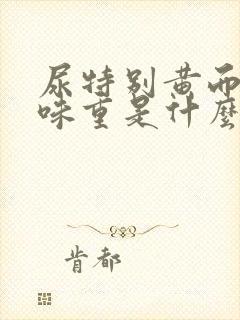 尿特别黄而
味重是什麼
肯都